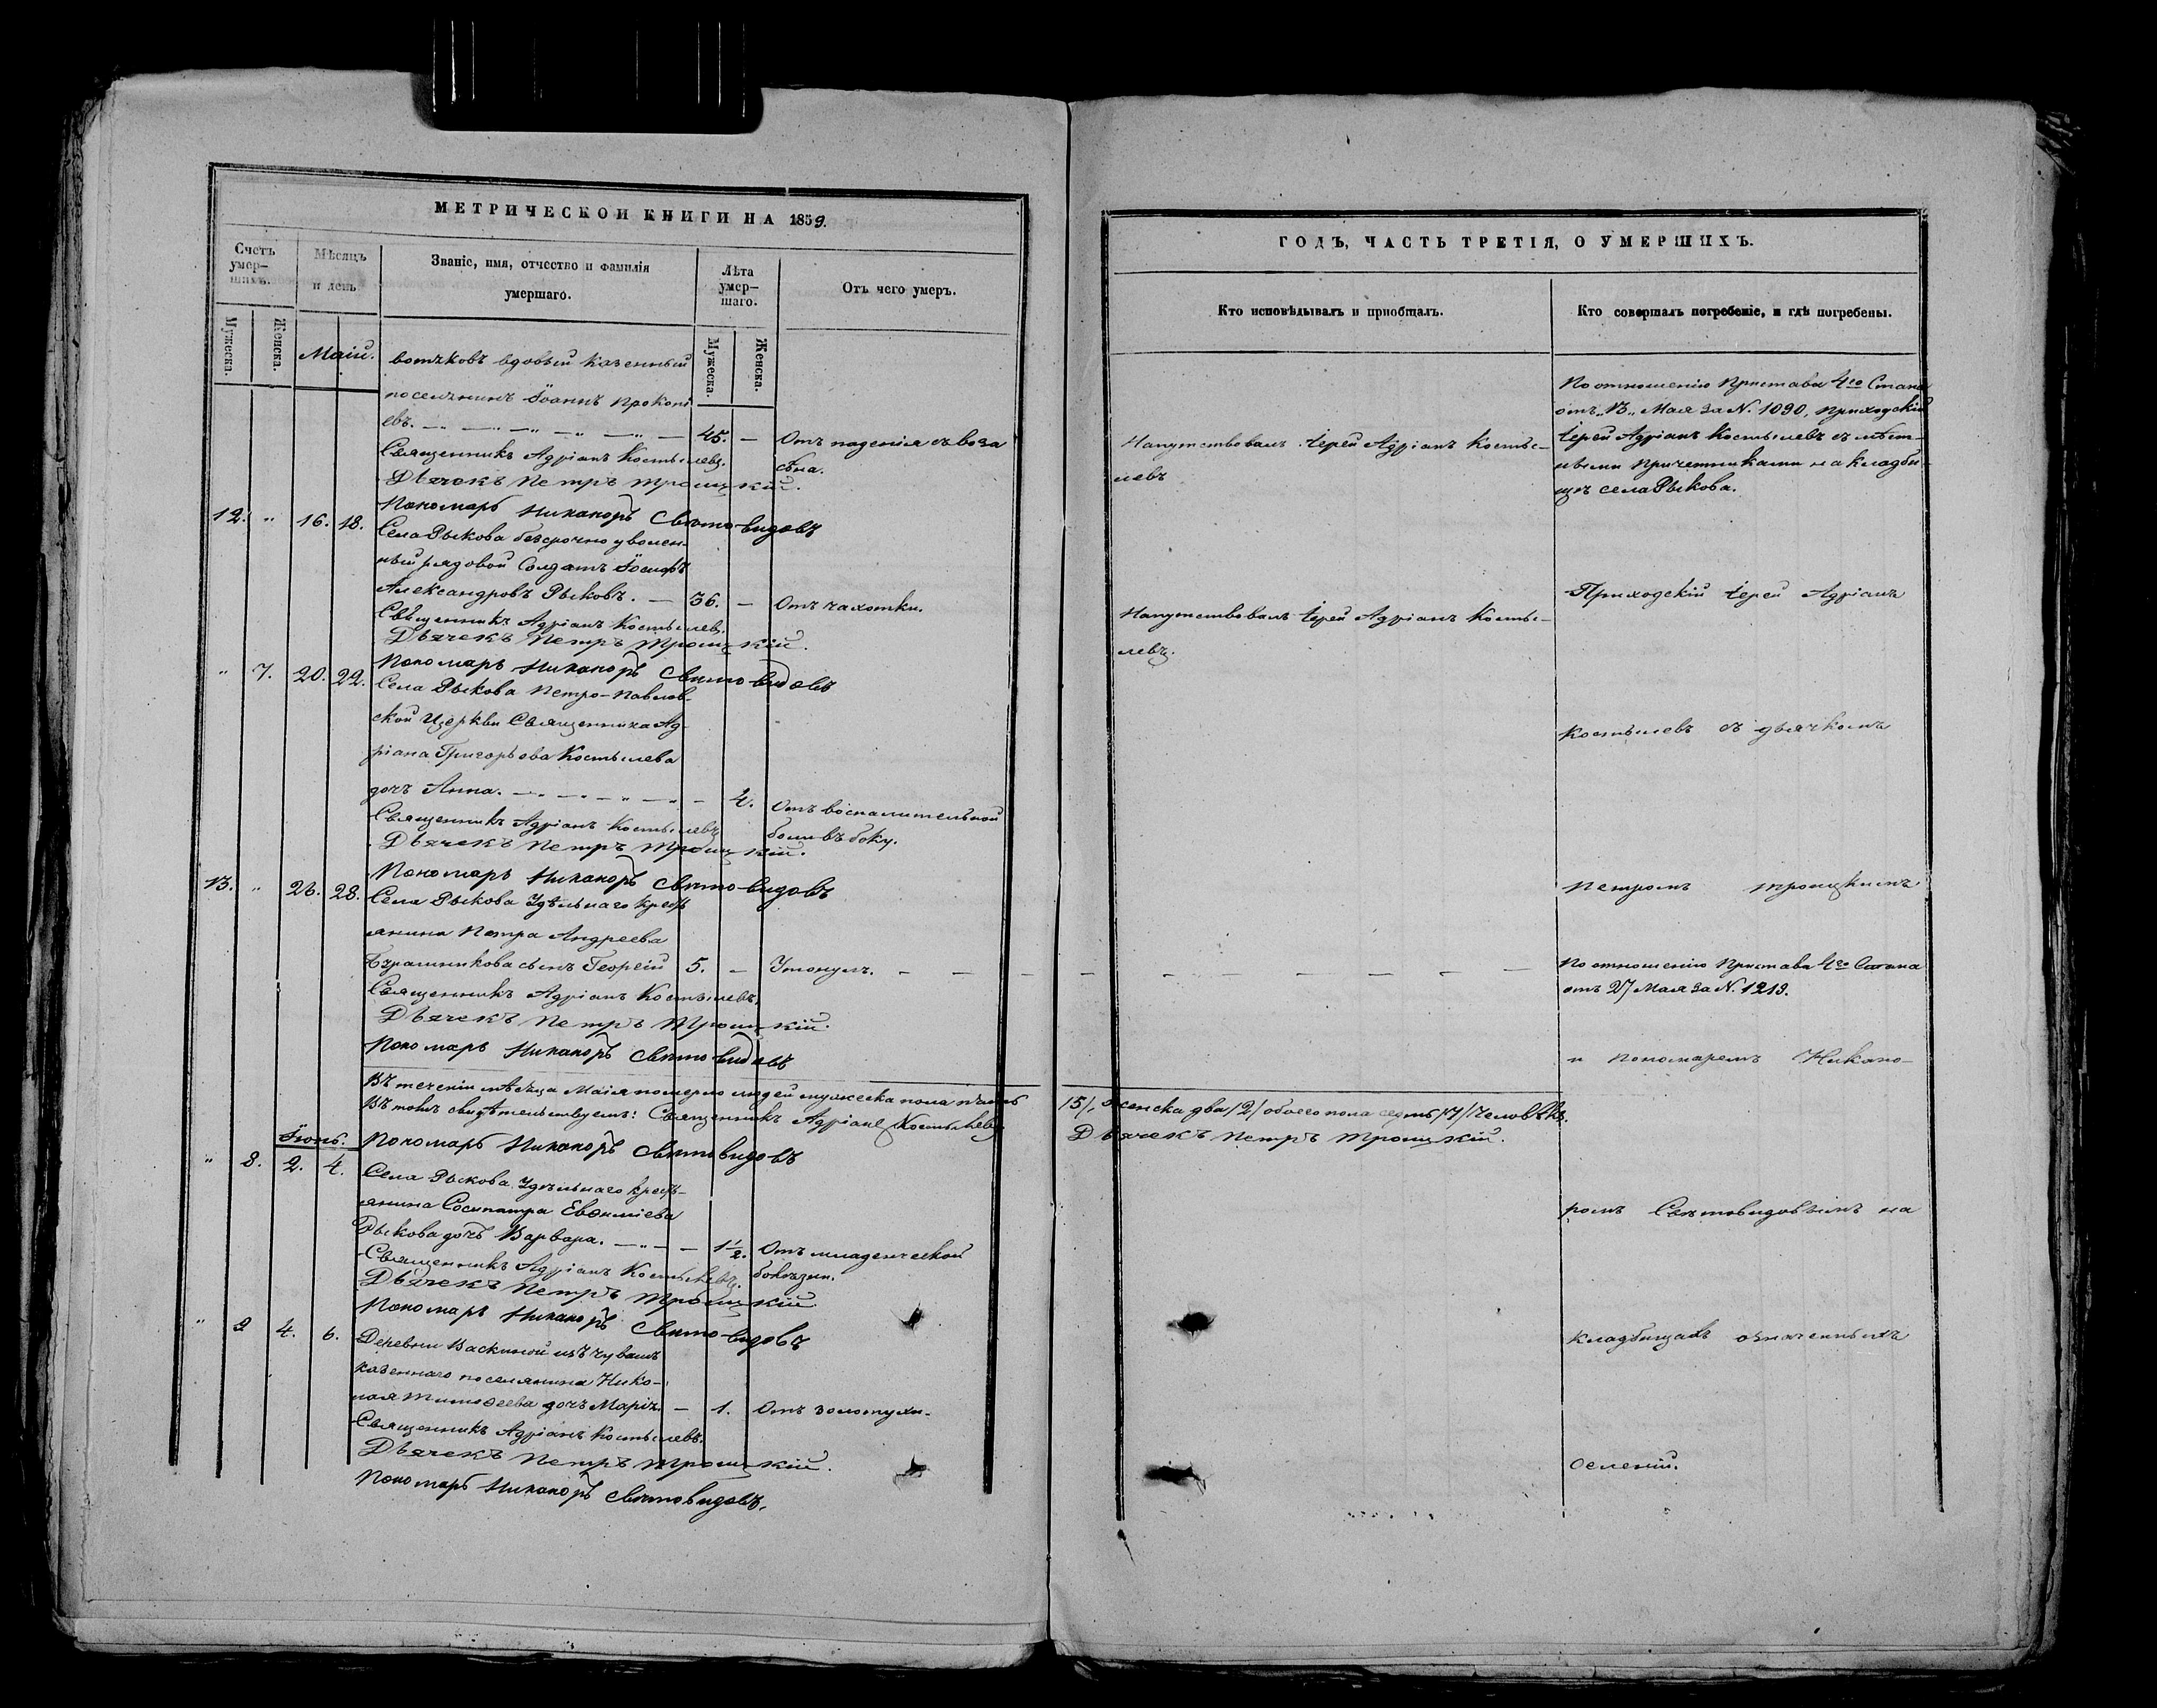 МЕТРИЧЕСКОЙ КНИГИ НА 1859.
Счетъ умер-
шихъ.
Мѣсяцъ
и день
Званіе, имя, отчество и фамилія
умершаго.
Лѣта
умер-
шаго.
Отъ чего умеръ.
Мужеска.
Женска.
Мужеска.
Женска.
Маій.
вотяковъ вдовый казенный
поселянинъ Іоаннъ Прокопі
евъ. 45. — Отъ паденія съ воза
сѣна.
Священникъ Адріанъ Костылевъ.
Дьячекъ Петръ Троицкій.
Пономарь Никаноръ Свѣтовидовъ
12. " 16. 18. Села Рыкова безсрочно уволен-
ный рядовой Солдатъ Іосифъ
Александровъ Рыковъ. — 36. — Отъ чахотки.
Священникъ Адріанъ Костылевъ.
Дьячекъ Петръ Троицкій.
Пономарь Никаноръ Свѣтовидовъ
" 7. 20. 22. Села Рыкова Петро-Павлов-
ской Церкви Священника Ад-
ріана Григорьева Костылева
дочь Анна. 4. Отъ воспалительной
боли въ боку.
Священникъ Адріанъ Костылевъ
Дьячекъ Петръ Троицкій.
Пономарь Никаноръ Свѣтовидовъ
13. " 26. 28. Села Рыкова Удѣльнаго крест
янина Петра Андреева
сынъ Георгій 5. — Утонулъ.
Священникъ Адріанъ Костылевъ.
Дьячекъ Петръ Троицкій.
Пономарь Никаноръ Свѣтовидовъ
Въ теченіи мѣсяца Маія померло людей мужеска пола пять
Въ томъ свидѣтельствуемъ: Священникъ Адріанъ Костылевъ
Пономарь Никаноръ Свѣтовидовъ
Іюнь.
" 8. 2. 4. Села Рыкова Удѣльнаго крест-
янина Сосипатра Евѳиміева
Рыкова дочь Варвара. 1½. Отъ младенческой
болѣзни.
Священникъ Адріанъ Костылевъ.
Дьячекъ Петръ Троицкій
Пономарь Никаноръ Свѣтовидовъ
" 9 4. 6. Деревни Васкиной изъ чувашъ
казеннаго поселянина Нико-
лая Тимоѳеева дочь Марія. — 1. Отъ золотухи.
Священникъ Адріанъ Костылевъ.
Дьячекъ Петръ Троицкій.
Пономарь Никаноръ Свѣтовидовъ.
ГОДЪ, ЧАСТЬ ТРЕТІЯ, О УМЕРШИХЪ.
Кто исповѣдывалъ и пріобщалъ.
Кто совершалъ погребеніе, и гдѣ погребены.
По отношенію Пристава 4го Стана
отъ „13„ Мая за N. 1090, Приходскій
Напутствовалъ Іерей Адріанъ Косты-
левъ
Іерей Адріанъ Костылевъ съ мѣст-
ными Причетниками на кладби-
щѣ села Рыкова.
Приходскій Іерей Адріанъ
Напутствовалъ Іерей Адріанъ Косты-
левъ.
Костылевъ съ дьячкомъ
Петромъ Троицкимъ
По отношенію Пристава 4го Стана
отъ 27 Мая за N. 1213.
и пономаремъ Никано-
/5/, женска два /2/ обоего пола седмь /7/ Человѣкъ.
Дьячекъ Петръ Троицкій.
ромъ Свѣтовидовымъ на
кладбищахъ означенныхъ
селеній.